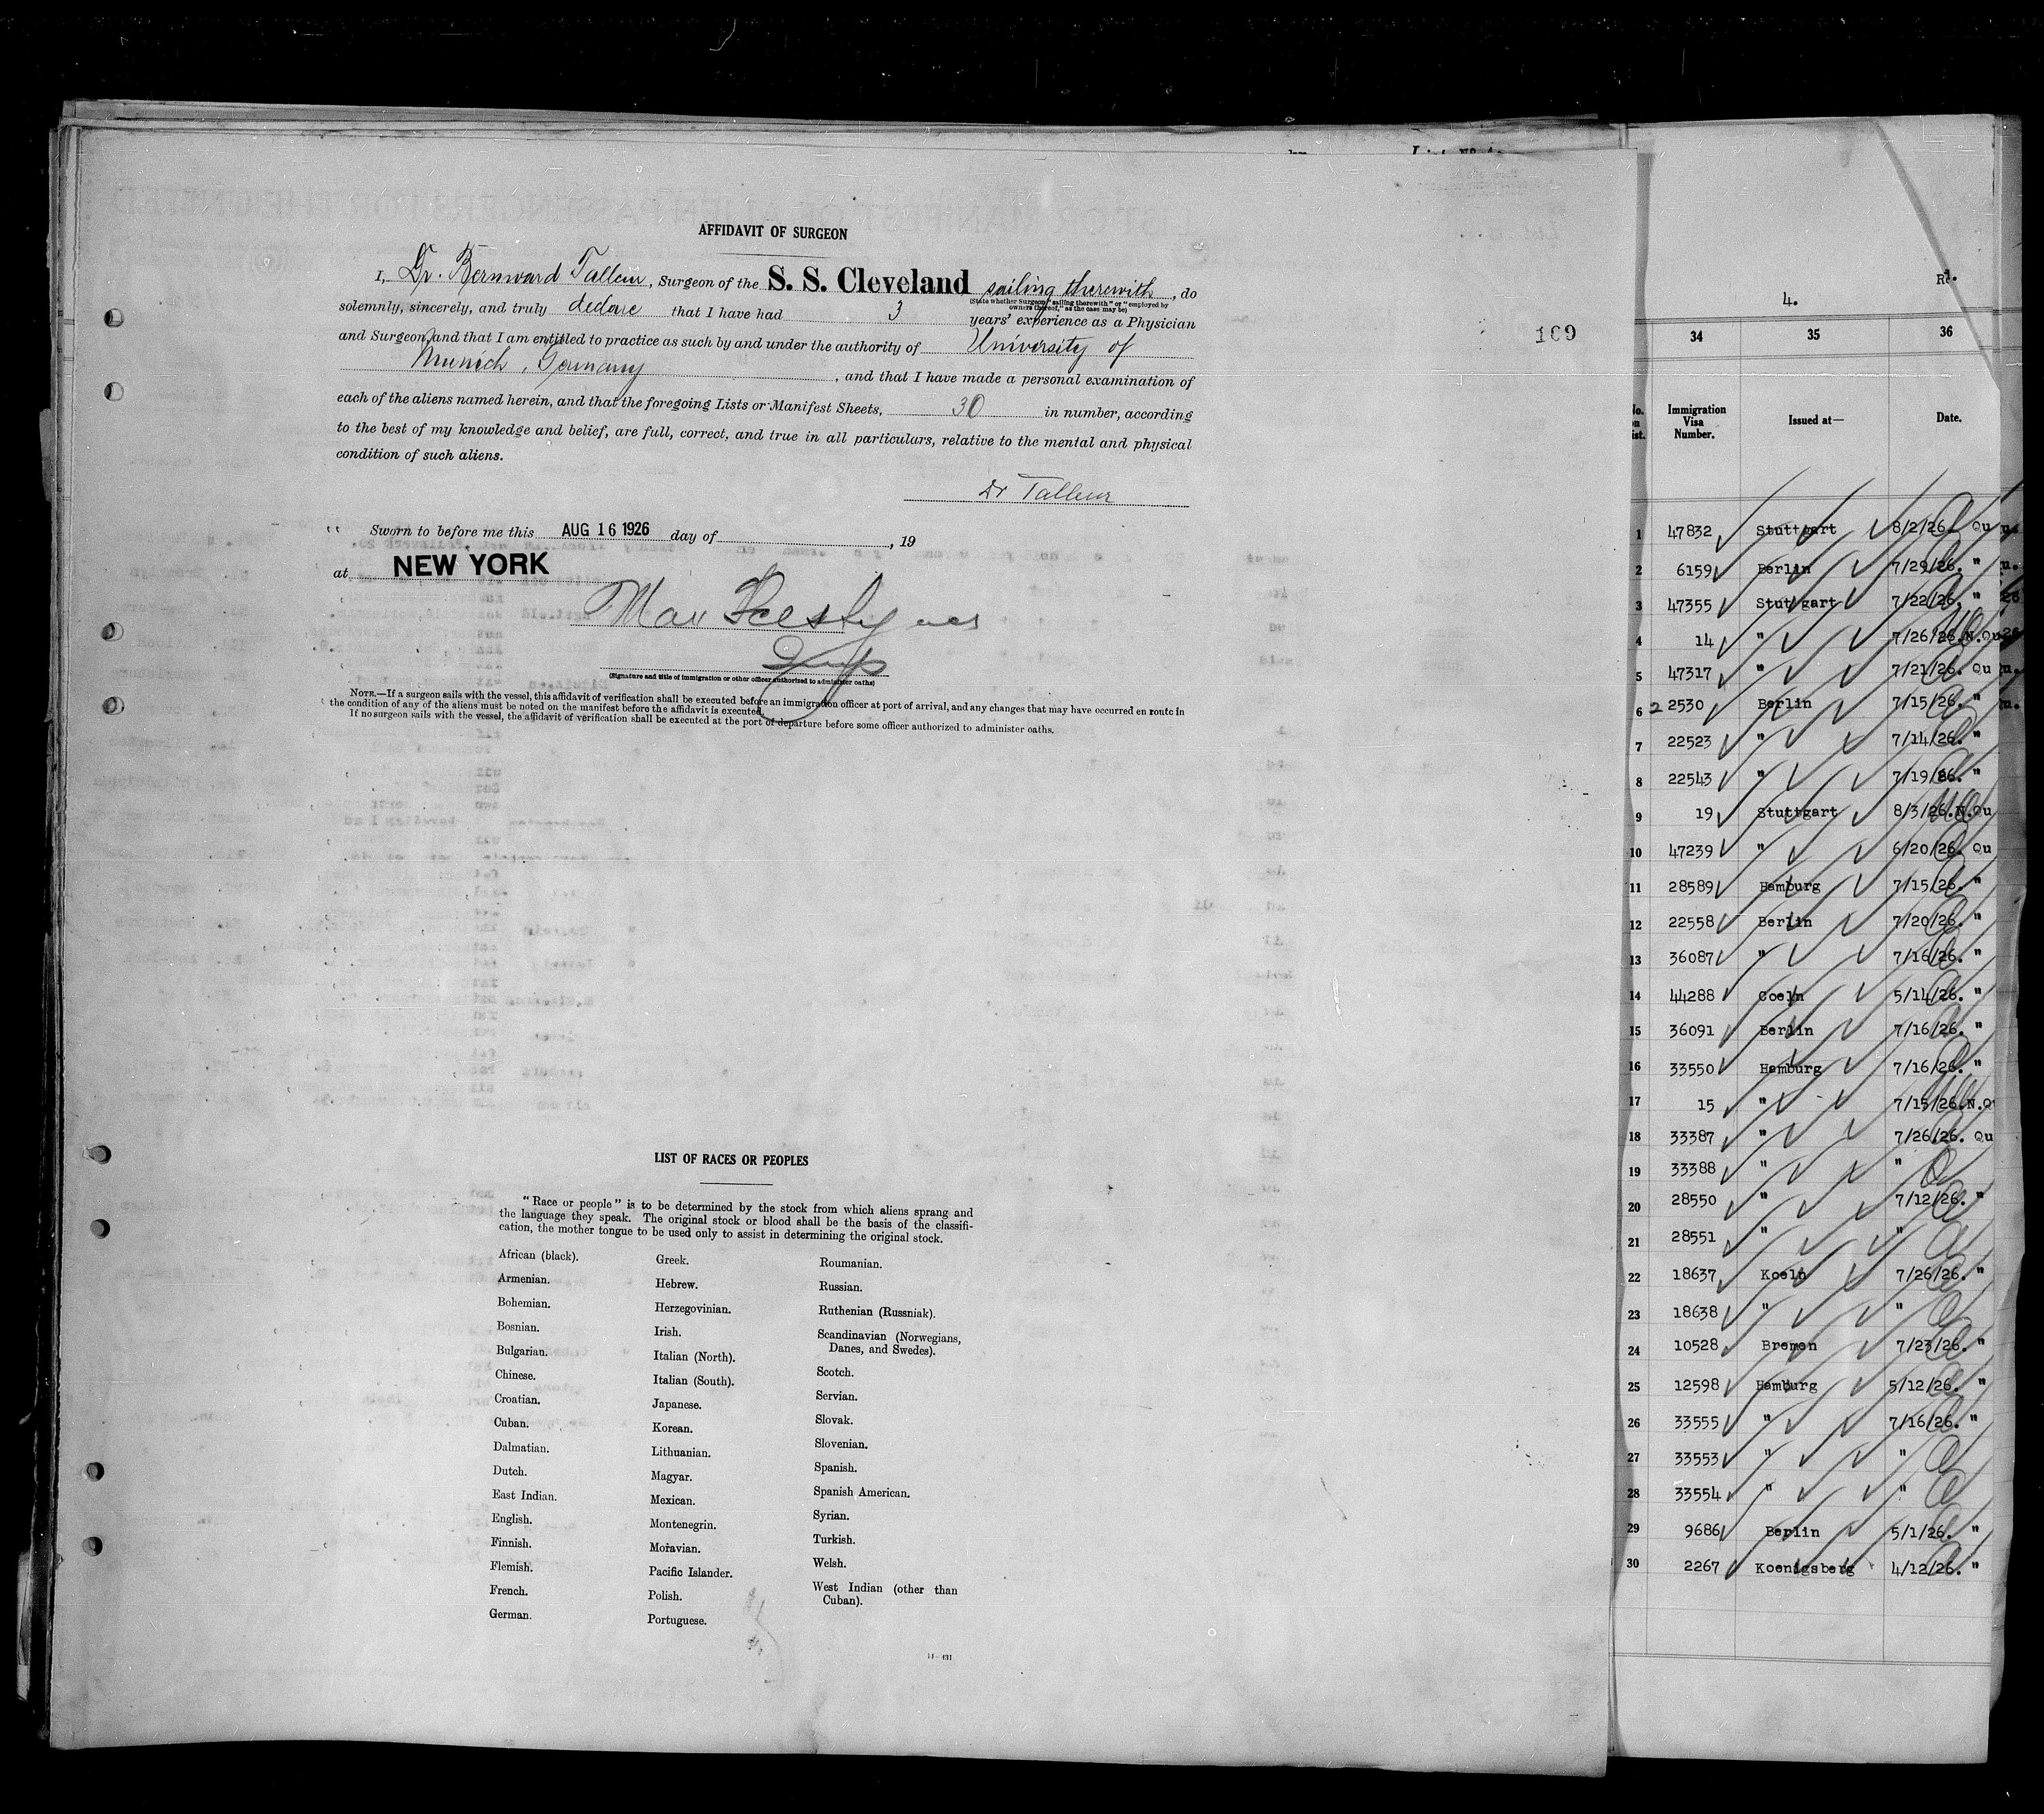 AFFIDAVIT OF SURGEON
I, Dr. Bernward Talleur, Surgeon of the S. S. Cleveland sailing therewith, do
(State whether Surgeon "sailing therewith" or "employed by owners thereof," as the case may be)
solemnly, sincerely, and truly declare that I have had 3 years' experience as a Physician
and Surgeon, and that I am entitled to practice as such by and under the authority of University of
Munich, Germany, and that I have made a personal examination of
each of the aliens named herein, and that the foregoing Lists or Manifest Sheets, 30 in number, according
to the best of my knowledge and belief, are full, correct, and true in all particulars, relative to the mental and physical
condition of such aliens.
Dr Talleur
Sworn to before me this AUG 16 1926 day of , 19
at NEW YORK
Max
(Signature and title of immigration or other officer authorized to administer oaths)
NOTE.—If a surgeon sails with the vessel, this affidavit of verification shall be executed before an immigration officer at port of arrival, and any changes that may have occurred en route in
the condition of any of the aliens must be noted on the manifest before the affidavit is executed.
If no surgeon sails with the vessel, the affidavit of verification shall be executed at the port of departure before some officer authorized to administer oaths.
169
LIST OF RACES OR PEOPLES
"Race or people" is to be determined by the stock from which aliens sprang and
the language they speak. The original stock or blood shall be the basis of the classifi-
cation, the mother tongue to be used only to assist in determining the original stock.
African (black).
Armenian.
Bohemian.
Bosnian.
Bulgarian.
Chinese.
Croatian.
Cuban.
Dalmatian.
Dutch.
East Indian.
English.
Finnish.
Flemish.
French.
German.
Greek.
Hebrew.
Herzegovinian.
Irish.
Italian (North).
Italian (South).
Japanese.
Korean.
Lithuanian.
Magyar.
Mexican.
Montenegrin.
Moravian.
Pacific Islander.
Polish.
Portuguese.
Roumanian.
Russian.
Ruthenian (Russniak).
Scandinavian (Norwegians,
Danes, and Swedes).
Scotch.
Servian.
Slovak.
Slovenian.
Spanish.
Spanish American.
Syrian.
Turkish.
Welsh.
West Indian (other than
Cuban).
14—431
4.
34 35 36
Immigration Visa Number. Issued at— Date.
1 47832 Stuttgart 8/2/26. Qu
2 6159 Berlin 7/29/26. "
3 47355 Stuttgart 7/22/26. "
4 14 " 7/26/26. N.Qu
5 47317 " 7/21/26. Qu
6 22530 Berlin 7/15/26. "
7 22523 " 7/14/26. "
8 22543 " 7/19/26. "
9 19 Stuttgart 8/3/26. N.Qu
10 47239 " 6/20/26. Qu
11 28589 Hamburg 7/15/26. "
12 22558 Berlin 7/20/26. "
13 36087 " 7/16/26. "
14 44288 Coeln 5/14/26. "
15 36091 Berlin 7/16/26. "
16 33550 Hamburg 7/16/26. "
17 15 " 7/15/26. N.Q
18 33387 " 7/26.26. Qu
19 33388 " "
20 28550 " 7/12/26. "
21 28551 " "
22 18637 Koeln 7/26/26. "
23 18638 " "
24 10528 Bremen 7/23/26. "
25 12598 Hamburg 5/12/26. "
26 33555 " 7/16/26. "
27 33553 " "
28 33554 " "
29 9686 Berlin 5/1/26. "
30 2267 Koenigsberg 4/12/26. "